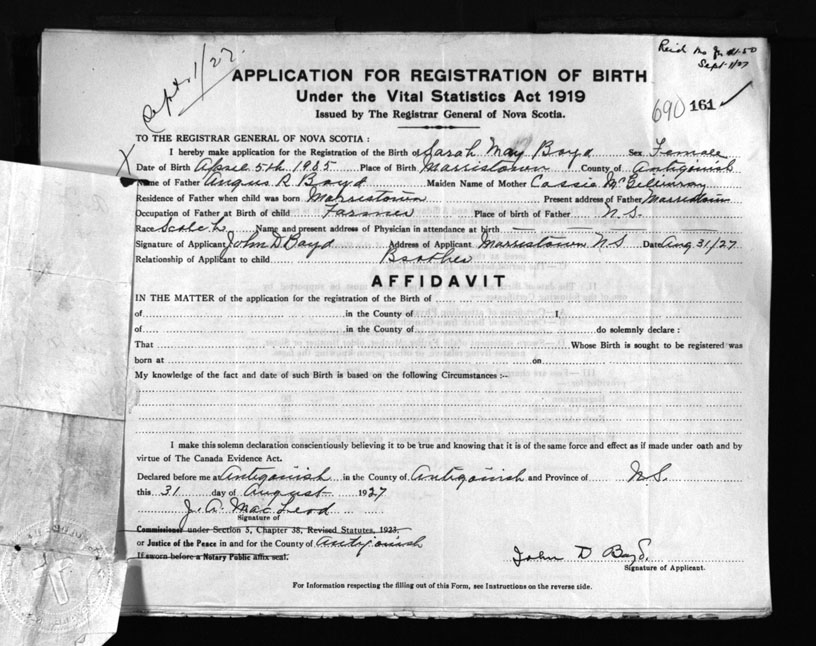 Sept 1/27.
Rec'd Mo Jr $1.50
Sept 1/27
APPLICATION FOR REGISTRATION OF BIRTH
Under the Vital Statistics Act 1919
Issued by The Registrar General of Nova Scotia.
690 161
TO THE REGISTRAR GENERAL OF NOVA SCOTIA :
X I hereby make application for the Registration of the Birth of Sarah May Boyd Sex Female
Date of Birth April 5th 1905 Place of Birth Marristown County of Antigonish
Name of Father Angus R Boyd Maiden Name of Mother Cassie McGillivray
Residence of Father when child was born Marristown Present address of Father Marristown
Occupation of Father at Birth of child Farmer Place of birth of Father N.S.
Race Scotch Name and present address of Physician in attendance at birth — — — —
Signature of Applicant John D Boyd Address of Applicant Marristown N S Date Aug 31/27
Relationship of Applicant to child Brother
AFFIDAVIT
IN THE MATTER of the application for the registration of the Birth of
of in the County of I,
of in the County of do solemnly declare :
That Whose Birth is sought to be registered was
born at on
My knowledge of the fact and date of such Birth is based on the following Circumstances :–
I make this solemn declaration conscientiously believing it to be true and knowing that it is of the same force and effect as if made under oath and by
virtue of The Canada Evidence Act.
Declared before me at Antigonish in the County of Antigonish and Province of N.S.
this 31 day of August 1927
J. A. MacLeod
Signature of
Commissioner under Section 5, Chapter 38, Revised Statutes, 1923.
or Justice of the Peace in and for the County of Antigonish
If sworn before a Notary Public affix seal.
John D Boyd.
Signature of Applicant.
For Information respecting the filling out of this Form, see Instructions on the reverse side.